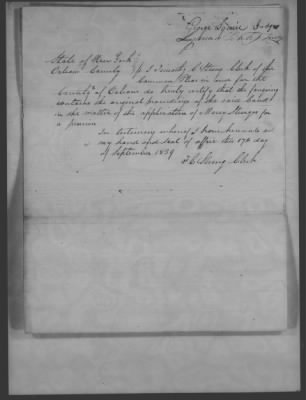 George
State of New York
Orleans County ss I Timothy C Strong Clerk of the
Common Pleas in and for the
County of Orleans do hereby certify that the foregoing
contains the original proceedings of the said Court
in the matter of the application of Mary Sturges for
a pension
In testimony whereof I have hereunto set
my hand and seal of office this 17th day
of September 1839
T. C. Strong Clerk